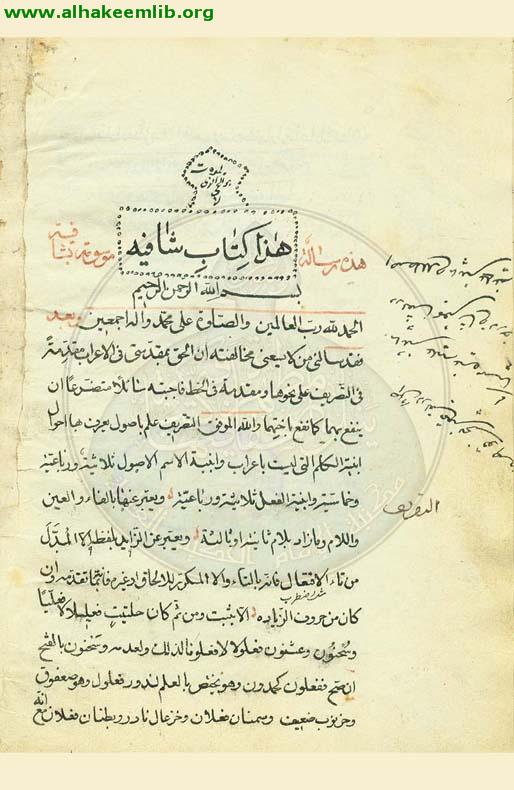 www.alhakeemlib.org
هذه رسالة
هذا كتاب شافيه
موسومة بشافية
بسم الله الرحمن الرحيم
الحمد لله رب العالمين والصلوة على محمد واله اجمعين وبعد
فقد سالنى من لا يسعنى مخالفته ان الحق بمقدمتى فى الاعراب مقدمة
فى التصريف على نحوها ومقدمة فى الخط فاجبته سائلا متضرعا ان
ينفع بهما كما نفع باختهما والله الموفق التصريف علم باصول يعرف بها احوال
ابنية الكلم التى ليست باعراب وابنية الاسم الاصول ثلاثية ورباعية
وخماسية وابنية الفعل ثلاثية ورباعية ويعبر عنها بالفاء والعين
واللام وما زاد بلام ثانية وثالثة ويعبر عن الزايد بلفظه الا المبدل
من تاء الافتعال فانه بالتاء والا المكرر للالحاق او غيره فانه بما تقدمه وان
كان من حروف الزيادة الا بثبت ومن ثم كان حلتيت فعليلا لا فعليتا
وسحنون وعثنون فعلولا لا فعلونا لذلك ولعدمه وسحنون بالفتح
ان صح ففعلون كحمدون وهو يختص بالعلم لندور فعلول وهو صعفوق
وخرنوب ضعيف وسمنان فعلان وخزعال نادر وبطنان فعلان
التصريف